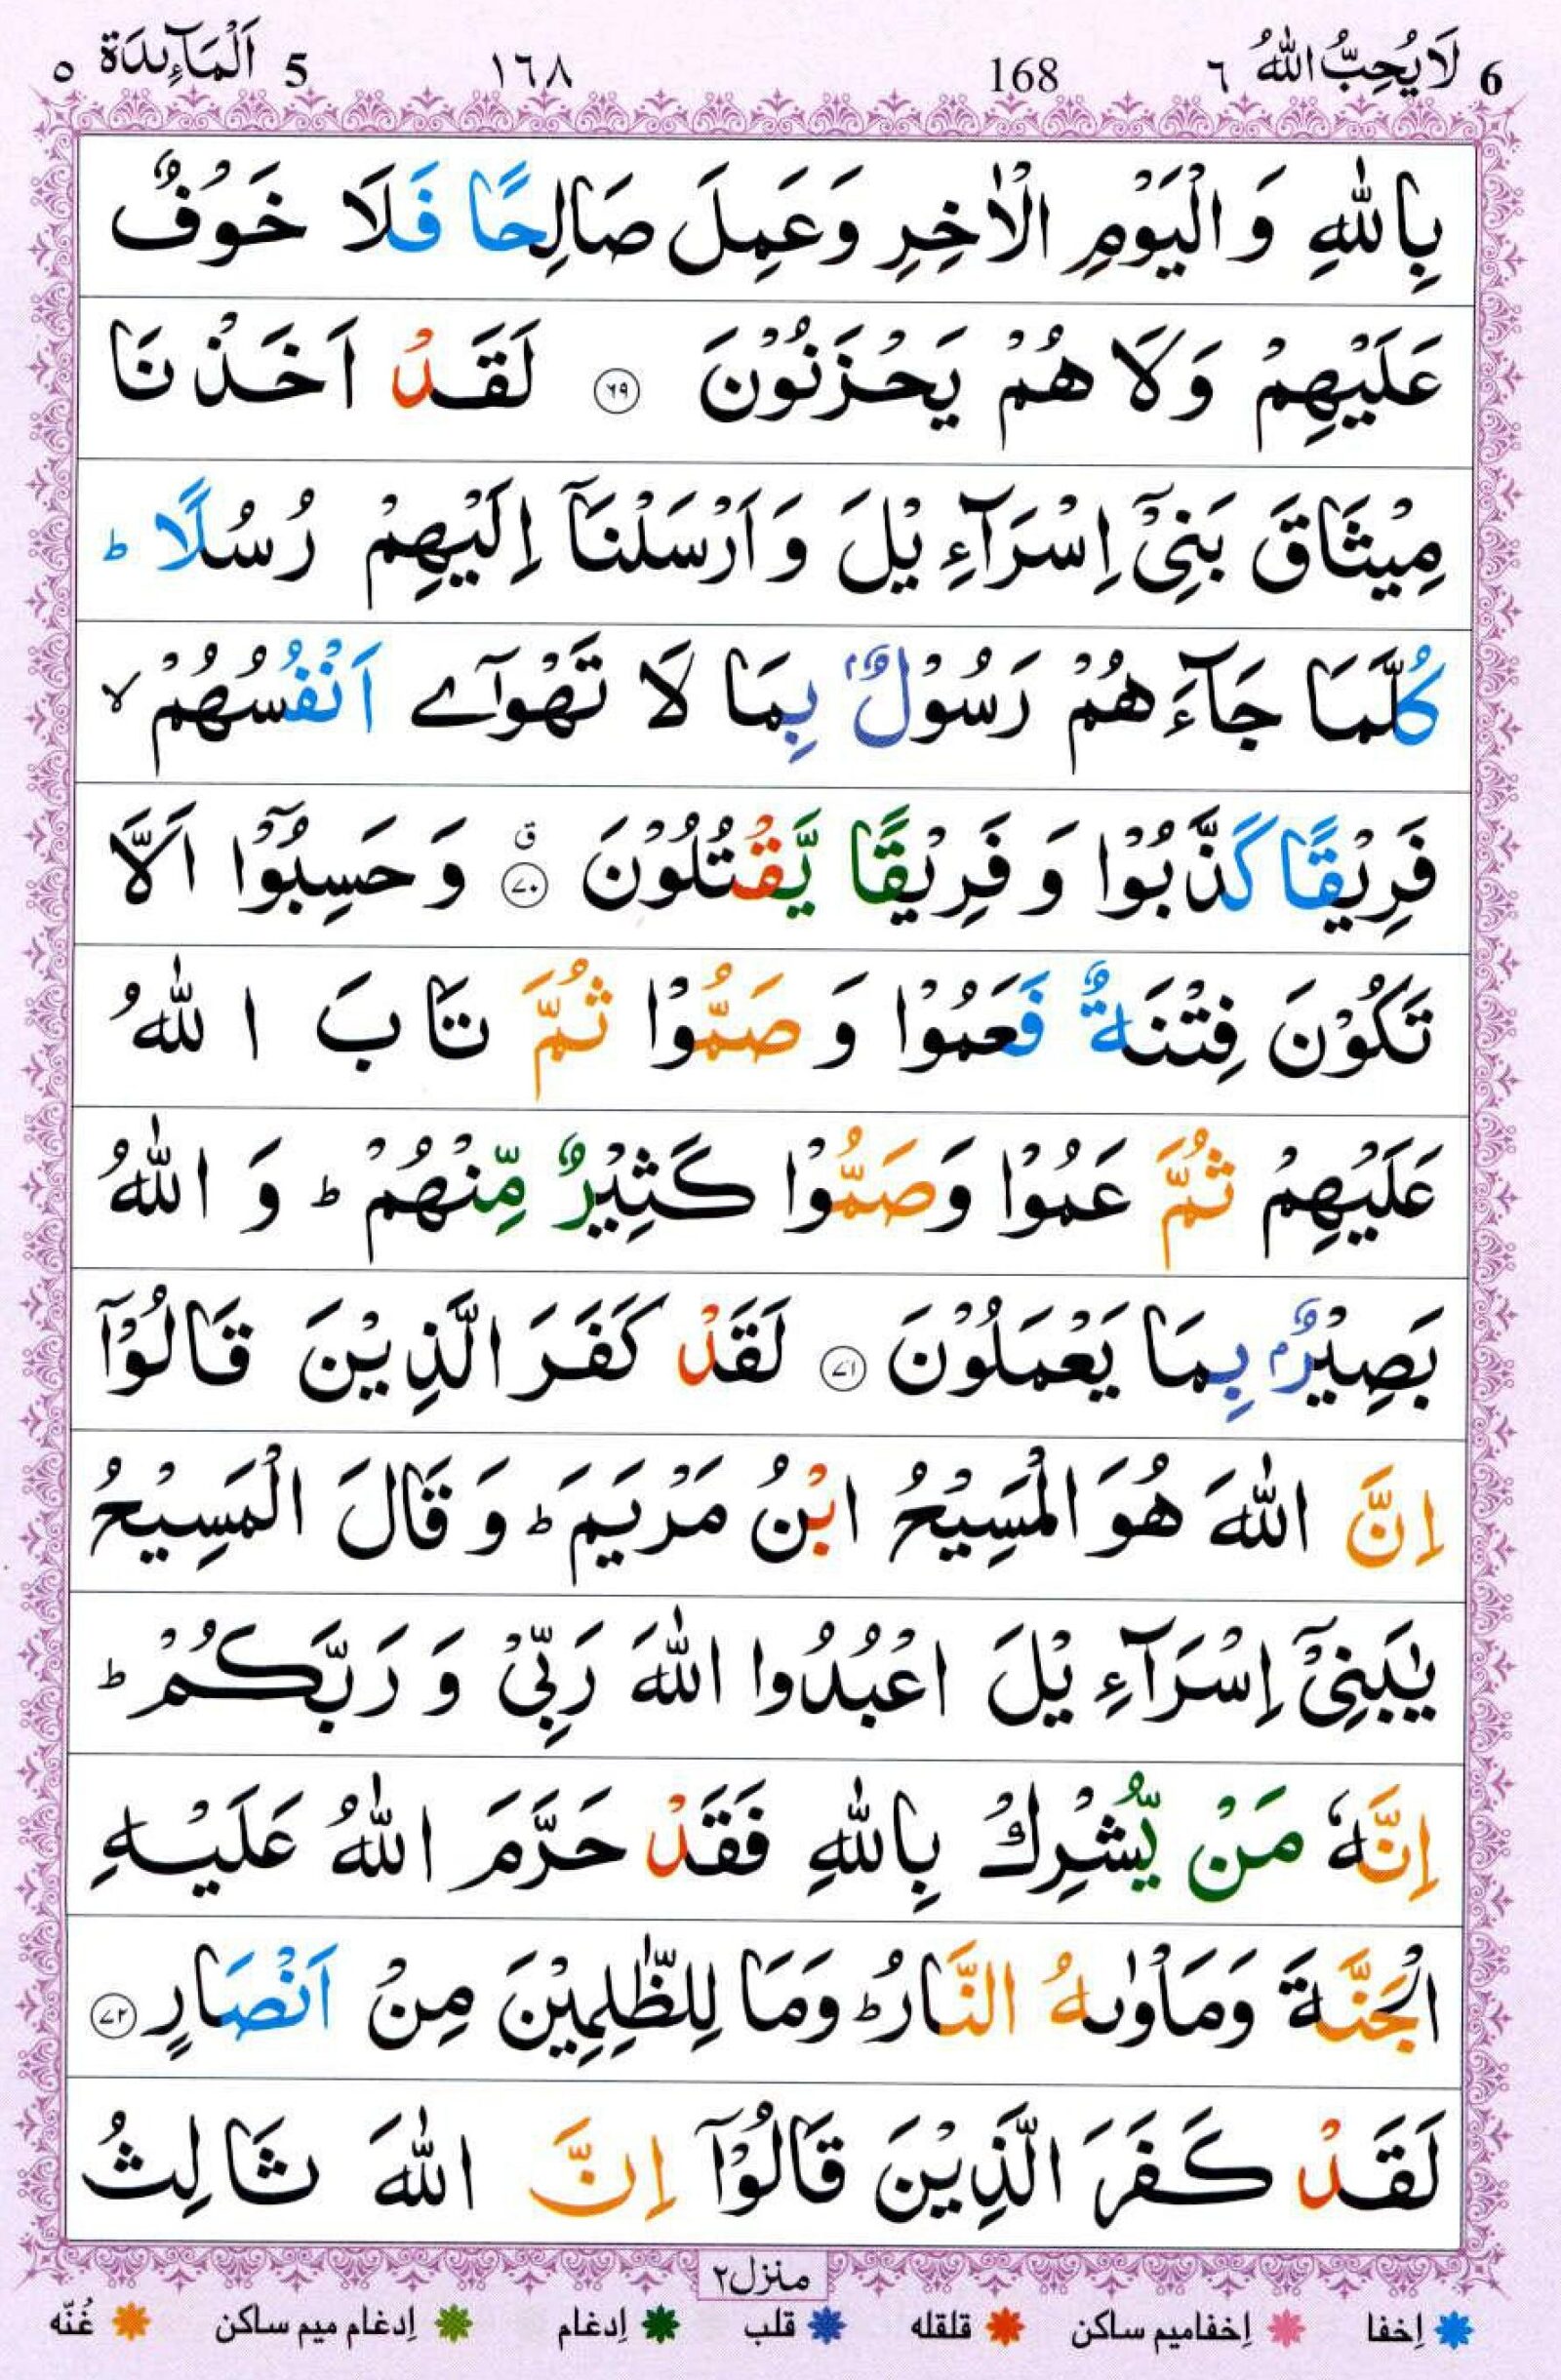 6 لَا يُحِبُّ اللّٰهُ ٦ 168 ١٦٨ 5 اَلْمَآئِدَة ٥
بِاللّٰهِ وَ الْيَوْمِ الْاٰخِرِ وَعَمِلَ صَالِحًا فَلَا خَوْفٌ
عَلَيْهِمْ وَلَا هُمْ يَحْزَنُوْنَ ﴿٦٩﴾ لَقَدْ اَخَذْنَا
مِيْثَاقَ بَنِيْٓ اِسْرَآءِيْلَ وَ اَرْسَلْنَآ اِلَيْهِمْ رُسُلًا ؕ
كُلَّمَا جَآءَهُمْ رَسُوْلٌۢ بِمَا لَا تَهْوٰٓى اَنْفُسُهُمْ ۙ
فَرِيْقًا كَذَّبُوْا وَ فَرِيْقًا يَّقْتُلُوْنَ ﴿٧٠﴾ ق وَ حَسِبُوْٓا اَلَّا
تَكُوْنَ فِتْنَةٌ فَعَمُوْا وَ صَمُّوْا ثُمَّ تَابَ اللّٰهُ
عَلَيْهِمْ ثُمَّ عَمُوْا وَصَمُّوْا كَثِيْرٌ مِّنْهُمْ ؕ وَ اللّٰهُ
بَصِيْرٌۢ بِمَا يَعْمَلُوْنَ ﴿٧١﴾ لَقَدْ كَفَرَ الَّذِيْنَ قَالُوْٓا
اِنَّ اللّٰهَ هُوَ الْمَسِيْحُ ابْنُ مَرْيَمَ ؕ وَ قَالَ الْمَسِيْحُ
يٰبَنِيْٓ اِسْرَآءِيْلَ اعْبُدُوا اللّٰهَ رَبِّيْ وَ رَبَّكُمْ ؕ
اِنَّهٗ مَنْ يُّشْرِكْ بِاللّٰهِ فَقَدْ حَرَّمَ اللّٰهُ عَلَيْهِ
الْجَنَّةَ وَمَاْوٰىهُ النَّارُ ؕ وَمَا لِلظّٰلِمِيْنَ مِنْ اَنْصَارٍ ﴿٧٢﴾
لَقَدْ كَفَرَ الَّذِيْنَ قَالُوْٓا اِنَّ اللّٰهَ ثَالِثُ
منزل٢
إخفا إخفامیم ساکن قلقله قلب إدغام إدغام میم ساکن غُنّه